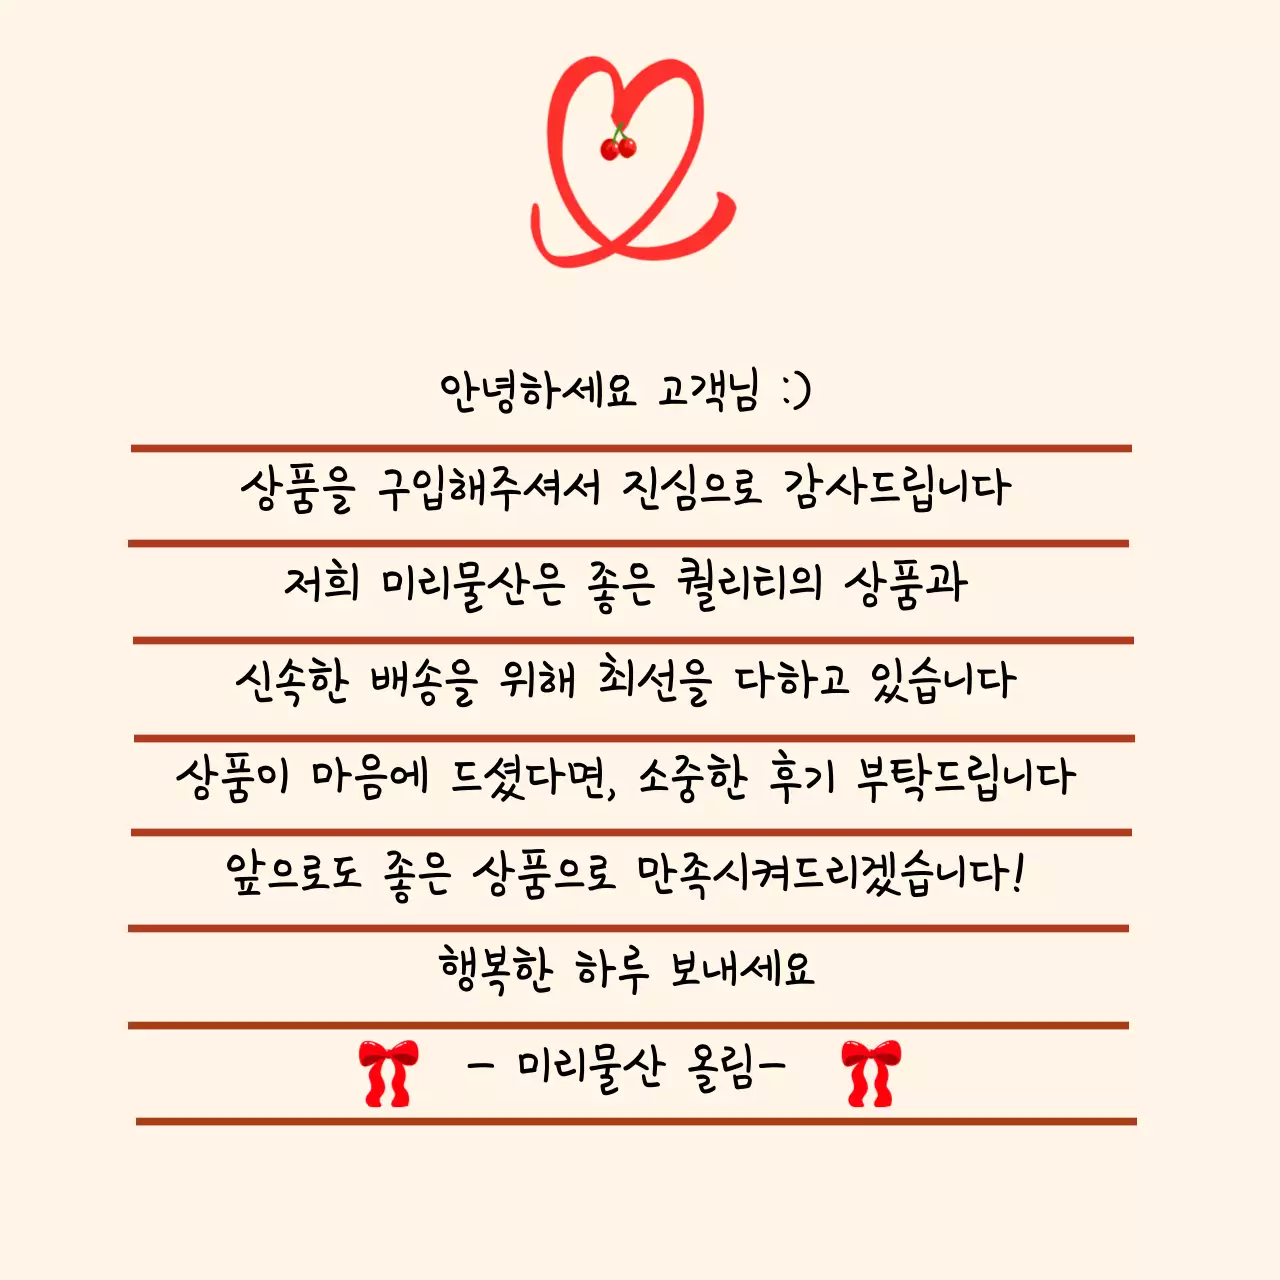 안녕하세요 고객님 :)
상품을 구입해주셔서 진심으로 감사드립니다
저희 미리물산은 좋은 퀄리티의 상품과
신속한 배송을 위해 최선을 다하고 있습니다
상품이 마음에 드셨다면, 소중한 후기 부탁드립니다
앞으로도 좋은 상품으로 만족시켜드리겠습니다!
행복한 하루 보내세요
- 미리물산 올림-